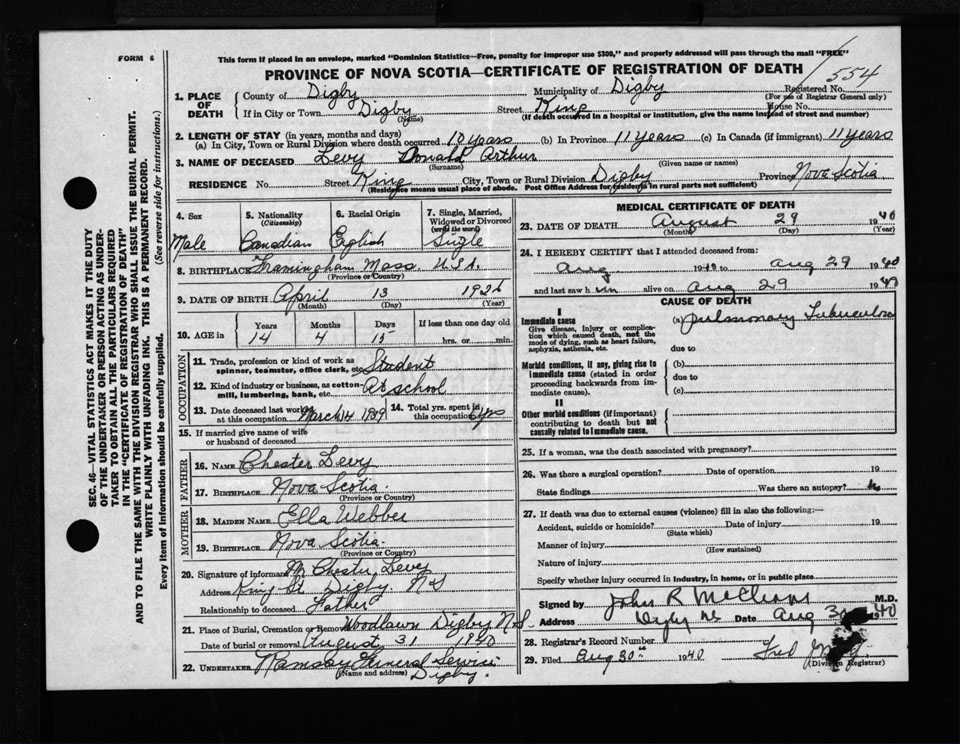 FORM 6
This form if placed in an envelope, marked "Dominion Statistics—Free, penalty for improper use $300," and properly addressed will pass through the mail "FREE"
PROVINCE OF NOVA SCOTIA—CERTIFICATE OF REGISTRATION OF DEATH
554
1. PLACE OF DEATH
County of Digby Municipality of Digby Registered No.
(For use of Registrar General only)
If in City or Town Digby Street King House No.
(Name) (If death occurred in a hospital or institution, give the name instead of street and number)
2. LENGTH OF STAY (in years, months and days)
(a) In City, Town or Rural Division where death occurred 10 years (b) In Province 11 years (c) In Canada (if immigrant) 11 years
3. NAME OF DECEASED Levy Donald Arthur
(Surname) (Given name or names)
RESIDENCE No. Street King City, Town or Rural Division Digby Province Nova Scotia
(Residence means usual place of abode. Post Office Address for residents in rural parts not sufficient)
4. Sex
Male
5. Nationality
(Citizenship)
Canadian
6. Racial Origin
English
7. Single, Married, Widowed or Divorced
(write the word)
Single
8. BIRTHPLACE Framingham Mass. U.S.A.
(Province or Country)
9. DATE OF BIRTH April 13
(Month) (Day) (Year)
10. AGE in
Years Months Days If less than one day old
14 4 15 hrs. or min.
OCCUPATION
11. Trade, profession or kind of work as spinner, teamster, office clerk, etc. Student
12. Kind of industry or business, as cotton-mill, lumbering, bank, etc. At school
13. Date deceased last worked at this occupation March
14. Total yrs. spent in this occupation
15. If married give name of wife or husband of deceased
FATHER
16. NAME Chester Levy
17. BIRTHPLACE Nova Scotia
(Province or Country)
MOTHER
18. MAIDEN NAME Ella Webber
19. BIRTHPLACE Nova Scotia
(Province or Country)
20. Signature of informant Mr Chester Levy
Address King St. Digby N S
Relationship to deceased Father
21. Place of Burial, Cremation or Removal Woodlawn Digby N.S.
Date of burial or removal August 31 1940
22. UNDERTAKER Ramsay Funeral Service
(Name and address) Digby.
MEDICAL CERTIFICATE OF DEATH
23. DATE OF DEATH August 29 1940
(Month) (Day) (Year)
24. I HEREBY CERTIFY that I attended deceased from:
Aug 19 to Aug 29 1940
and last saw him alive on Aug 29 1940
CAUSE OF DEATH
I
Immediate cause
Give disease, injury or complication which caused death, not the mode of dying, such as heart failure, asphyxia, asthenia, etc.
(a) Pulmonary Tuberculosis
due to
Morbid conditions, if any, giving rise to immediate cause (stated in order proceeding backwards from immediate cause).
(b)
due to
(c)
II
Other morbid conditions (if important) contributing to death but not causally related to immediate cause.
25. If a woman, was the death associated with pregnancy?
26. Was there a surgical operation? Date of operation 19
State findings Was there an autopsy?
27. If death was due to external causes (violence) fill in also the following:—
Accident, suicide or homicide? Date of injury 19
(State which)
Manner of injury
(How sustained)
Nature of injury
Specify whether injury occurred in industry, in home, or in public place
Signed by John R M.D.
Address Digby NS Date Aug 30 40
28. Registrar's Record Number
29. Filed Aug 30th 1940 Fred
(Division Registrar)
SEC. 46—VITAL STATISTICS ACT MAKES IT THE DUTY
OF THE UNDERTAKER OR PERSON ACTING AS UNDER-
TAKER TO OBTAIN ALL THE PARTICULARS REQUIRED
IN THE "CERTIFICATE OF REGISTRATION OF DEATH"
AND TO FILE THE SAME WITH THE DIVISION REGISTRAR WHO SHALL ISSUE THE BURIAL PERMIT.
WRITE PLAINLY WITH UNFADING INK. THIS IS A PERMANENT RECORD.
Every item of information should be carefully supplied. (See reverse side for instructions.)